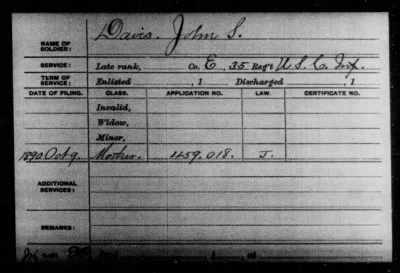 NAME OF SOLDIER: Davis. John S.
SERVICE: Late rank, Co. E, 35 Reg't U. S. C. Inf.
TERM OF SERVICE: Enlisted , 1 Discharged , 1
DATE OF FILING. CLASS. APPLICATION NO. LAW. CERTIFICATE NO.
Invalid,
Widow,
Minor,
1890 Oct 9. Mother. 459.018. J.
ADDITIONAL SERVICES:
REMARKS: